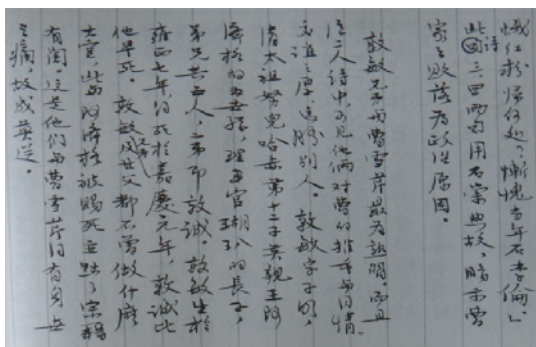 娥红粉归何处？惭愧当年石季倫。」
此诗三、四两句用石崇典故，暗示曹
家之败落为政治原因。
敦敏兄弟与曹雪芹最为熟習。而且
二人诗中，可见他俩对曹的推重与情
谊厚，远勝别人。敦敏字子明，
清太祖努兒哈赤第十二子英親王阿
济格的五世孫，理事官瑚玐的長子，
弟兄共五人，二弟即敦诚。敦敏生於
雍正七年，约死於嘉慶元年，敦诚比
他早死。敦敏及其父都不曾做什麽
大官，此与阿济格被赐死並黜了宗籍
有関。这是他们与曹雪芹同有身世
之痛，故成莫逆。